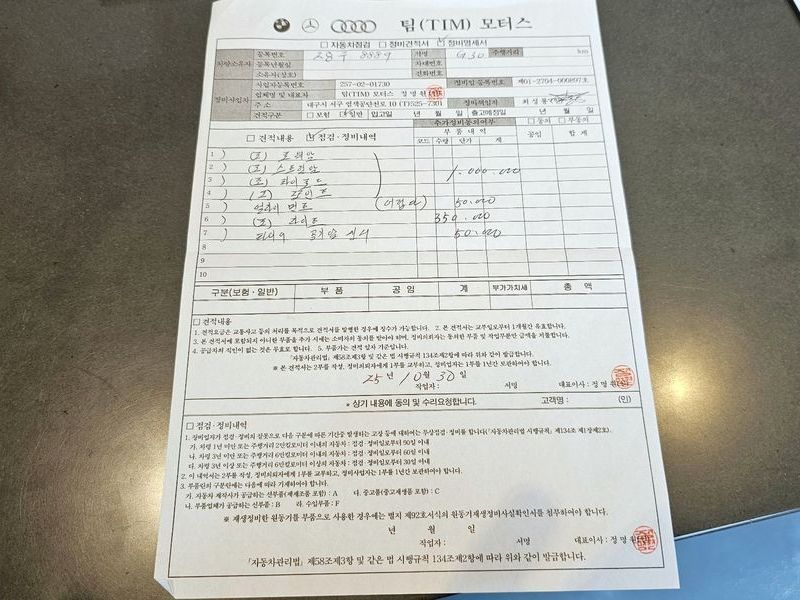 팀(TIM) 모터스
□ 자동차점검 □ 정비견적서 ☑ 정비명세서
차량소유자 등록번호 8889 차명 G30 주행거리 km
등록년월일 차대번호
소유자(상호) 전화번호
정비사업자 사업자등록번호 257-02-01730 정비업 등록번호
업체명 및 대표자 팀(TIM) 모터스 정 명 원
주 소 대구시 서구 염색공단천로 10 (T)525-7301 정비책임자
견적구분 □ 보험 ☑ 일반 입고일 년 월 일 출고예정일 년 월 일
□ 견적내용 ☑ 점검·정비내역 추가정비동의여부 □ 동의 □ 부동의
부 품 내 역 공임 합 계
코드 수량 단가 계
1 ) (조) 로워암
2 ) (조) 스트럿암 1.000.000
3 ) (조) 타이로드
4 )
5 ) 얼라이먼트 50.000
6 ) (조) 350.000
7 ) 타이어 50.000
8
9
10
구분(보험·일반) 부 품 공 임 계 부가가치세 총 액
□ 견적내용
1. 견적요금은 교통사고 등의 처리를 목적으로 견적서를 발행한 경우에 징수가 가능합니다. 2. 본 견적서는 교부일로부터 1개월간 유효합니다.
3. 본 견적서에 포함되지 아니한 부품을 추가 시에는 소비자의 동의를 받아야 되며, 정비의뢰자는 동의한 부품 및 작업부분만 금액을 지불합니다.
4. 공급자의 직인이 없는 것은 무효로 합니다. 5. 부품가는 견적 일자 기준입니다.
「자동차관리법」제58조제3항 및 같은 법 시행규칙 134조제2항에 따라 위와 같이 발급합니다.
※ 본 견적서는 2부를 작성, 정비의뢰자에게 1부를 교부하고, 정비사업자는 1부를 1년간 보관하여야 합니다.
25 년 10 월 30 일
작업자 : 서명 대표이사 : 정 명 원
* 상기 내용에 동의 및 수리요청합니다. 고객명 : (인)
□ 점검·정비내역
1. 정비업자가 점검·정비의 잘못으로 다음 구분에 따른 기간중 발생하는 고장 등에 대하여는 무상점검·정비를 합니다(「자동차관리법 시행규칙」제134조 제1항제2호).
가. 차령 1년 미만 또는 주행거리 2만킬로미터 이내의 자동차 : 점검·정비일로부터 90일 이내
나. 차령 3년 미만 또는 주행거리 6만킬로미터 이내의 자동차 : 점검·정비일로부터 60일 이내
다. 차령 3년 이상 또는 주행거리 6만킬로미터 이상의 자동차 : 점검·정비일로부터 30일 이내
2. 이 내역서는 2부를 작성, 정비의뢰자에게 1부를 교부하고, 정비사업자는 1부를 1년간 보관하여야 합니다.
3. 부품란의 구분란에는 다음에 따라 기재하여야 합니다.
가. 자동차 제작사가 공급하는 신부품(재제조품 포함) : A 다. 중고품(중고재생품 포함) : C
나. 부품업체가 공급하는 신부품 : B 라. 수입부품 : F
※ 재생정비한 원동기를 부품으로 사용한 경우에는 별지 제92호서식의 원동기재생정비사실확인서를 첨부하여야 합니다.
년 월 일
작업자 : 서명 대표이사 : 정 명 원
「자동차관리법」제58조제3항 및 같은 법 시행규칙 134조제2항에 따라 위와 같이 발급합니다.